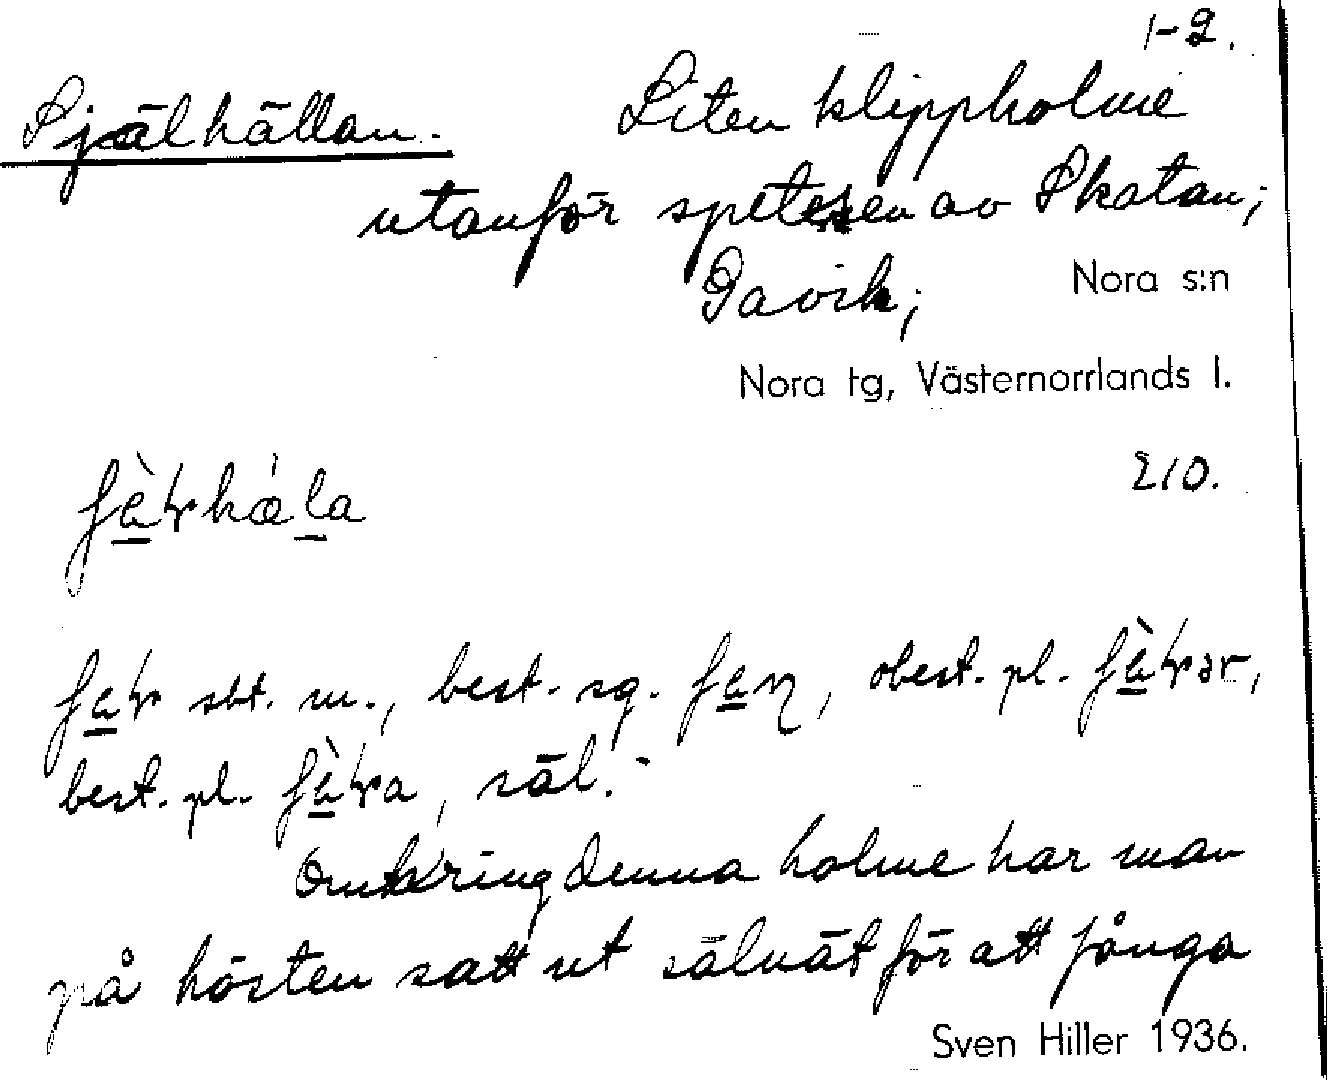 1-2.
Själhällan.
Liten klippholme
utanför spetsen av Skatan;
Gavik;
Nora s:n
Nora tg, Västernorrlands l.
210.
best. sg.
obest. pl.
sbt. m.,
best. pl.
säl.
Omkring denna holme har man
på hösten satt ut sälnät för att fånga
Sven Hiller 1936.